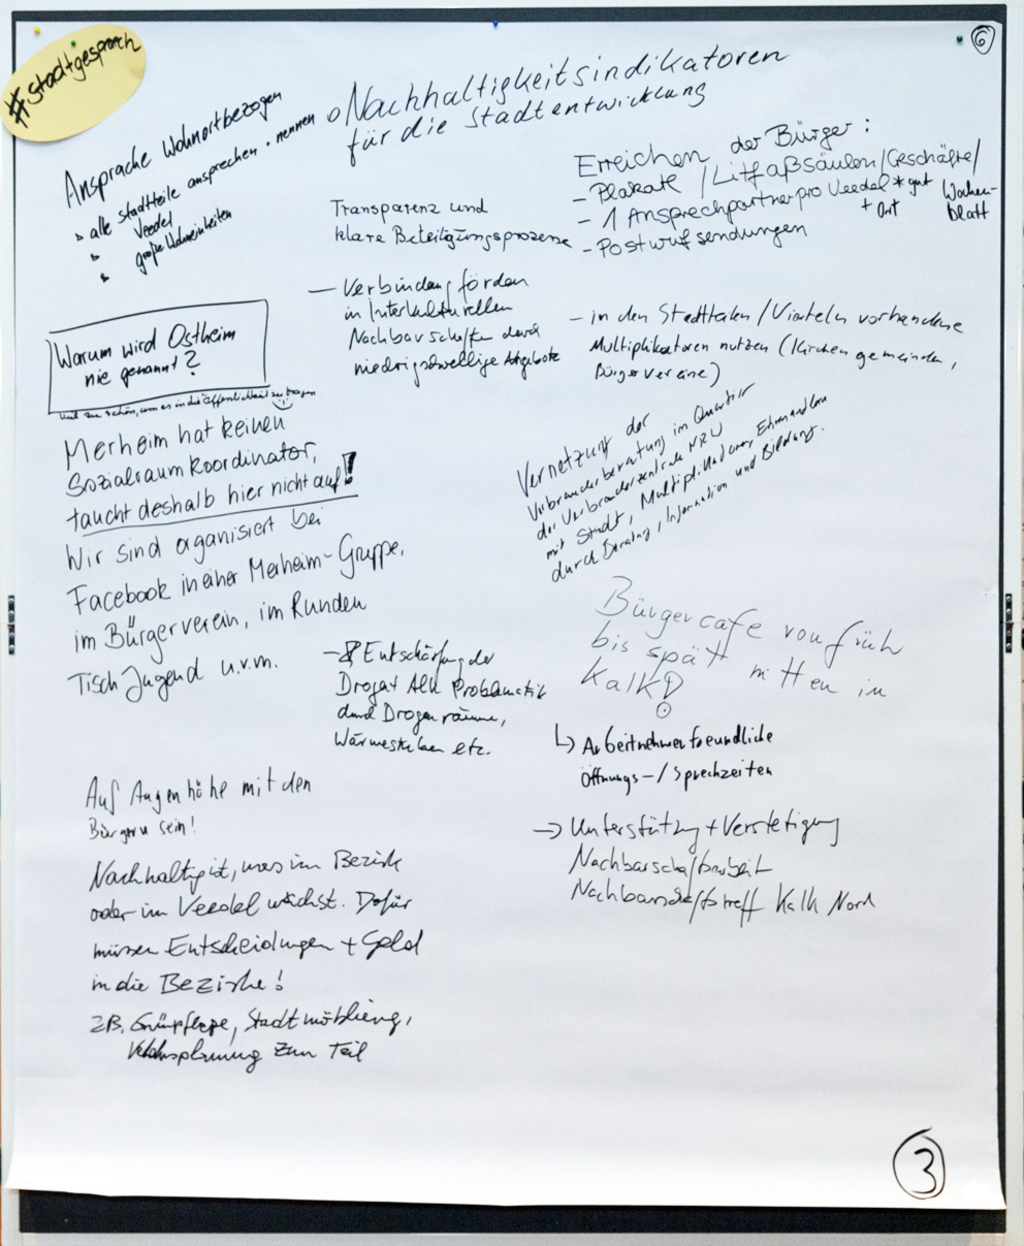 #Stadtgespräch
6
Ansprache Wohnortbezogen
alle Stadtteile ansprechen + nennen
Veedel
große Wohneinheiten
Nachhaltigkeitsindikatoren
für die Stadtentwicklung
Transparenz und
klare Beteiligungsprozesse
Erreichen der Bürger:
- Plakate / Litfaßsäulen / Geschäfte /
Wochen-
blatt
- 1 Ansprechpartner pro Veedel * gut
+ Ort
- Postwurfsendungen
- Verbindung fördern
in Interkulturellen
Nachbarschaften durch
niedrigschwellige Angebote
- in den Stadtteilen / Vierteln vorhandene
Multiplikatoren nutzen (Kirchengemeinden,
Bürgervereine)
Warum wird Ostheim
nie genannt?
viel zu schön, um es in die Öffentlichkeit zu tragen
Merheim hat keinen
Sozialraumkoordinator,
taucht deshalb hier nicht auf!
Wir sind organisiert bei
Facebook in einer Merheim-Gruppe,
im Bürgerverein, im Runden
Tisch Jugend u.v.m.
Vernetzung der
Verbraucherberatung im Quartier
der Verbraucherzentrale NRW
mit Stadt, Multiplikatoren, Ehrenamtlern
durch Beratung, Information und Bildung.
Bürgercafe von früh
bis spät mitten in
Kalk!
↳ Arbeitnehmerfreundliche
Öffnungs-/Sprechzeiten
- Entschärfung der
Drogen Alk Problematik
durch Drogenräume,
Wärmestuben etc.
→ Unterstützung + Verstetigung
Nachbarschaftsarbeit
Nachbarschaftstreff Kalk Nord
Auf Augenhöhe mit den
Bürgern sein!
Nachhaltig ist, was im Bezirk
oder im Veedel wächst. Dafür
müssen Entscheidungen + Geld
in die Bezirke!
z.B. Grünpflege, Stadtmöblierung,
Verkehrsplanung zum Teil
3